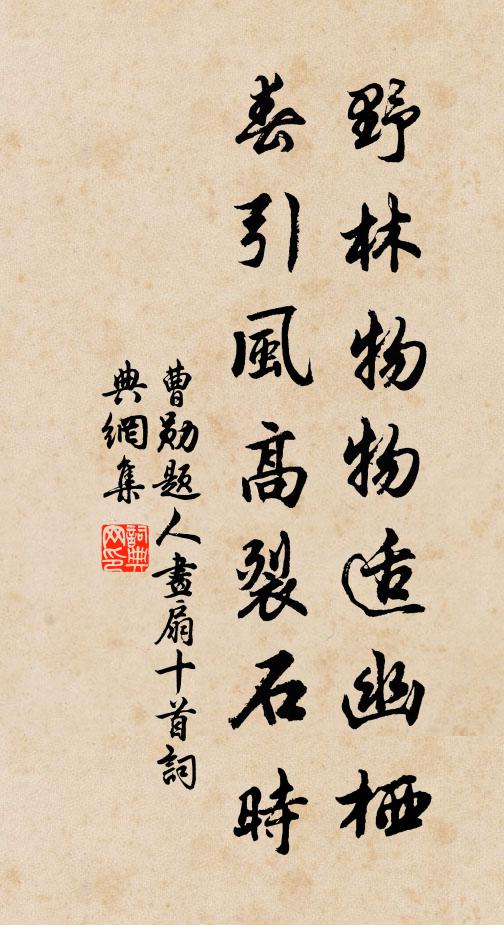 野林物物适幽栖
春引風高裂石時
曹勛題人畫扇十首詞
典網集
詞典
网印